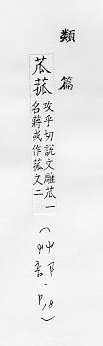 類篇
苽菰
攻乎切說文雕苽一
名蔣或作菰文二
(艸部・P.18)